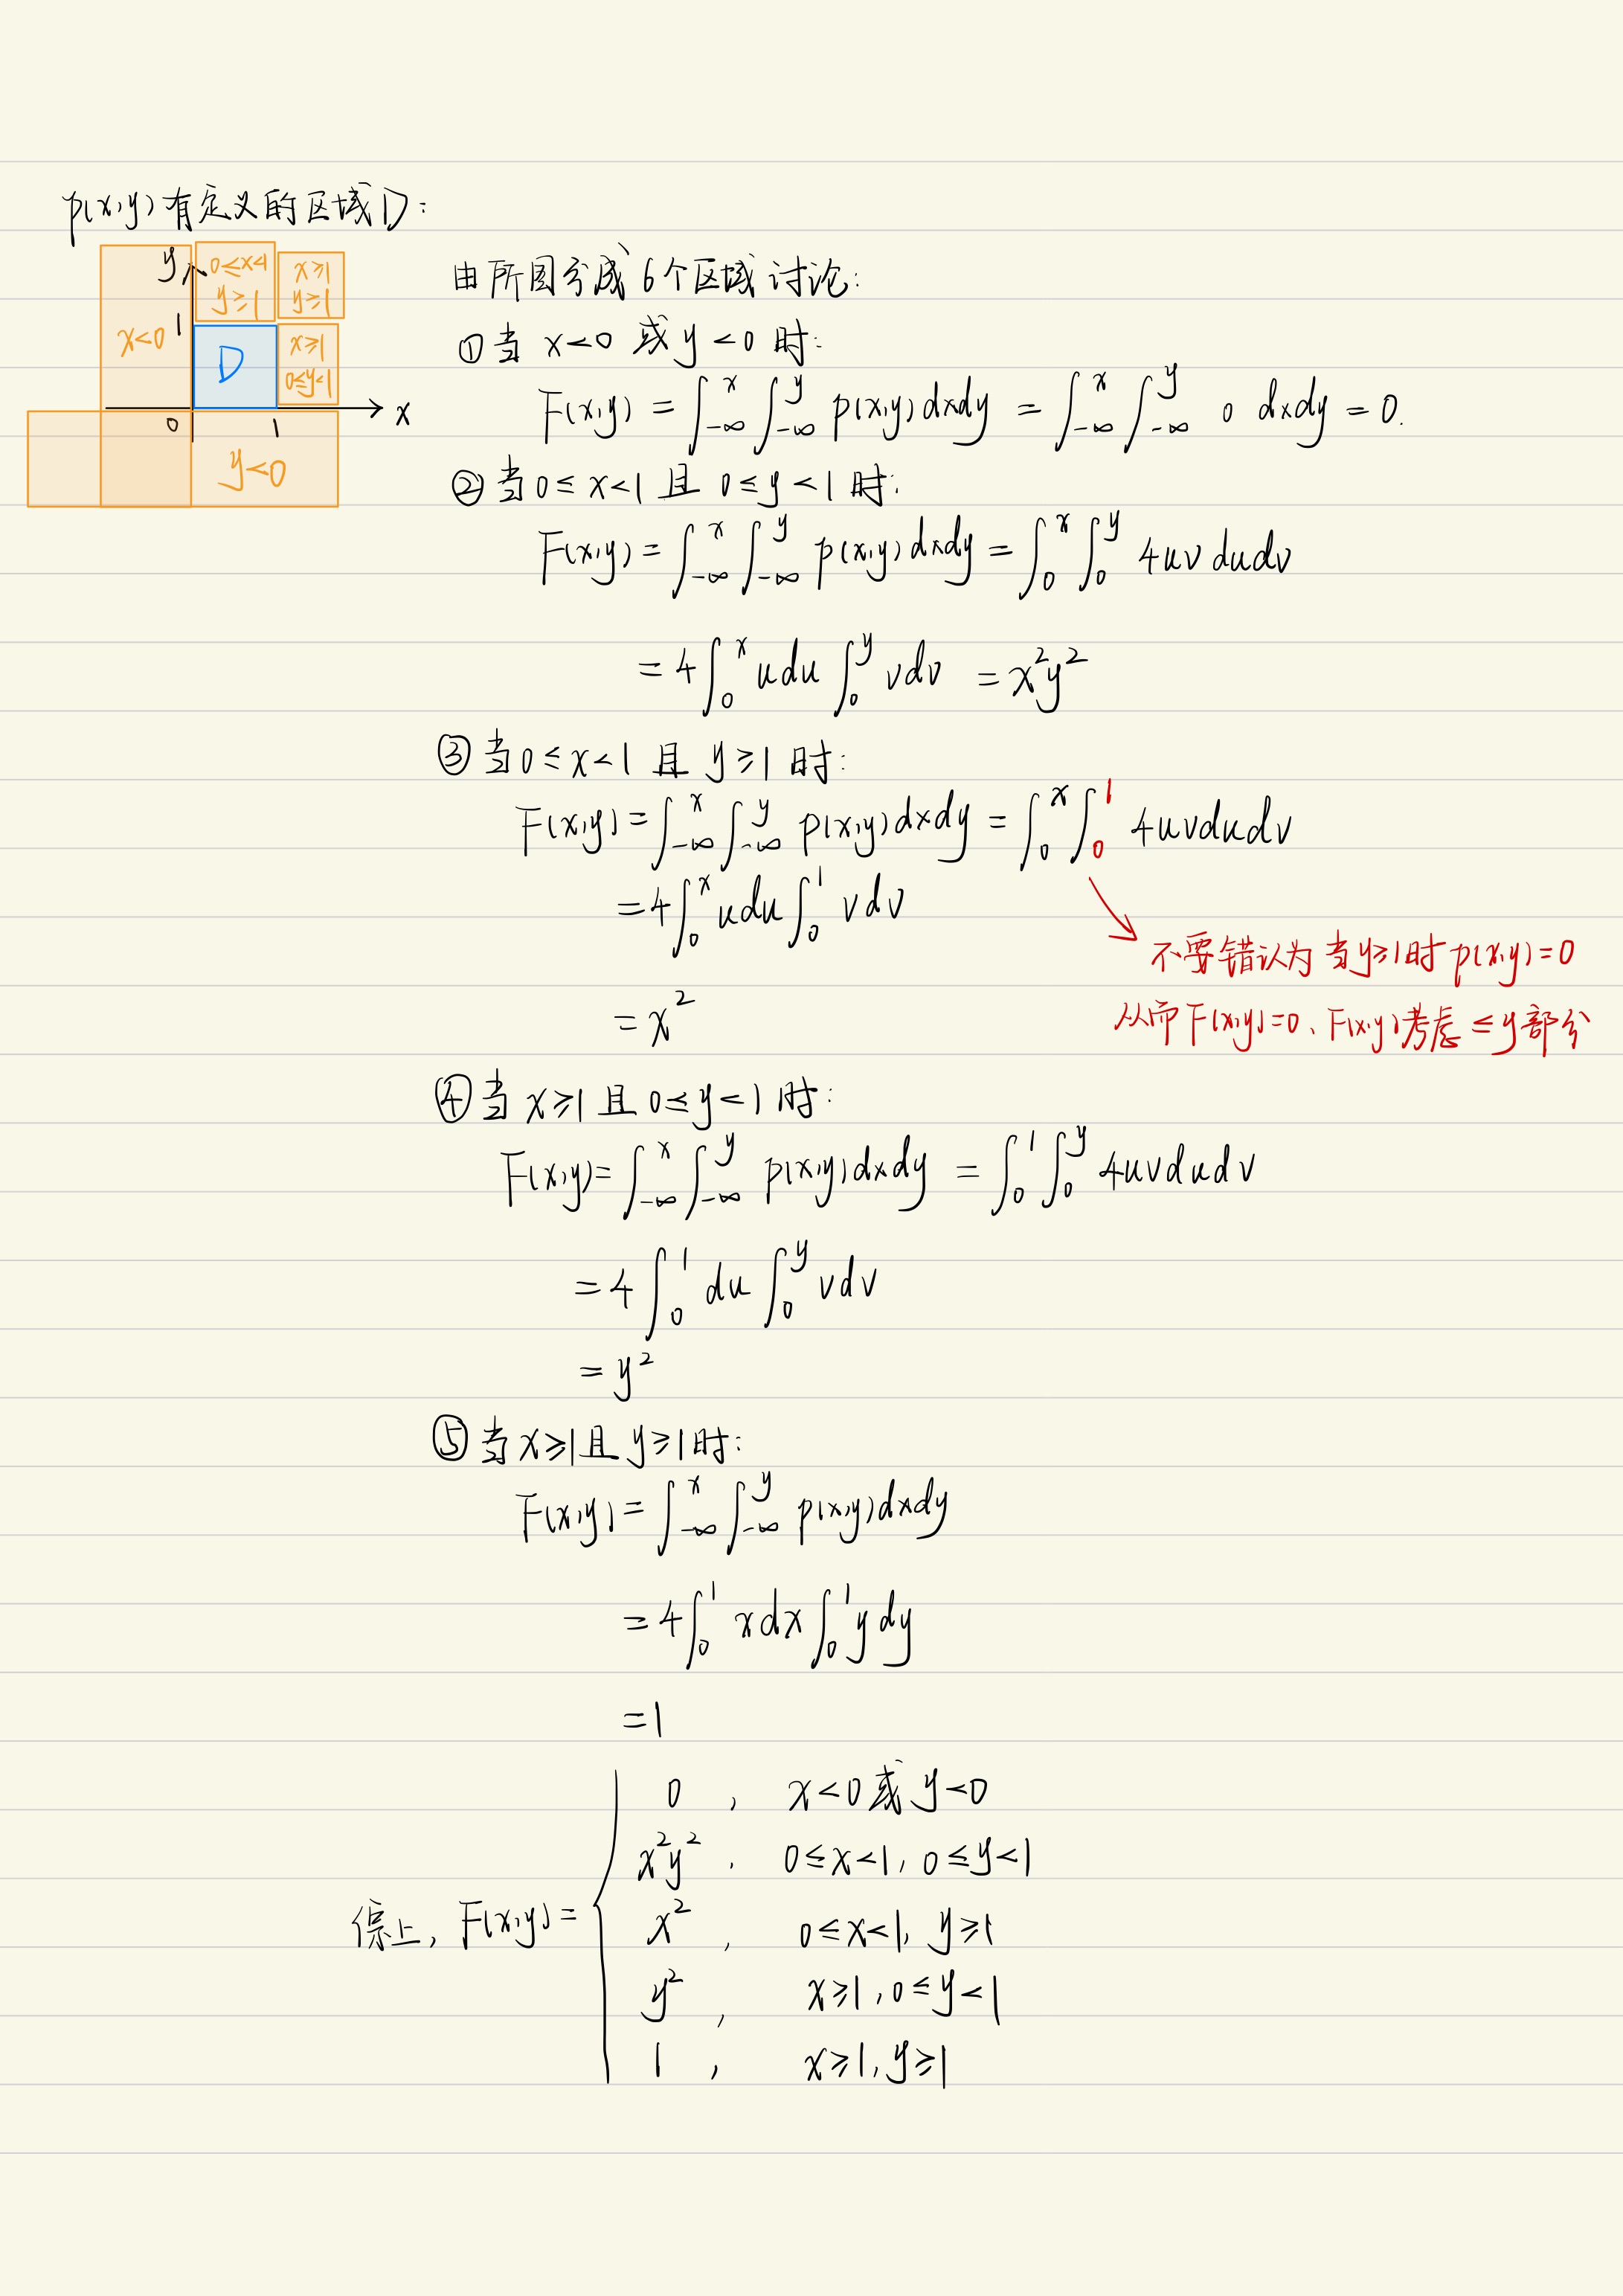 p(x,y)有定义的区域D:
y
0≤x<1
y≥1
x≥1
y≥1
x<0
1
D
x≥1
0≤y<1
0
1
x
y<0
由所图分成6个区域讨论:
①当 x<0 或 y<0 时:
F(x,y) = ∫_{-∞}^{x} ∫_{-∞}^{y} p(x,y) dxdy = ∫_{-∞}^{x} ∫_{-∞}^{y} 0 dxdy = 0.
②当 0≤x<1 且 0≤y<1 时:
F(x,y) = ∫_{-∞}^{x} ∫_{-∞}^{y} p(x,y) dxdy = ∫_{0}^{x} ∫_{0}^{y} 4uv dudv
= 4∫_{0}^{x} u du ∫_{0}^{y} v dv = x²y²
③当 0≤x<1 且 y≥1 时:
F(x,y) = ∫_{-∞}^{x} ∫_{-∞}^{y} p(x,y) dxdy = ∫_{0}^{x} ∫_{0}^{1} 4uvdudv
= 4∫_{0}^{x} udu ∫_{0}^{1} vdv
不要错认为当y≥1时p(x,y)=0
= x²
从而F(x,y)=0、F(x,y)考虑≤y部分
④当 x≥1 且 0≤y<1 时:
F(x,y) = ∫_{-∞}^{x} ∫_{-∞}^{y} p(x,y)dxdy = ∫_{0}^{1} ∫_{0}^{y} 4uvdudv
= 4∫_{0}^{1} du ∫_{0}^{y} vdv
= y²
⑤当 x≥1且 y≥1时:
F(x,y) = ∫_{-∞}^{x} ∫_{-∞}^{y} p(x,y)dxdy
= 4∫_{0}^{1} xdx ∫_{0}^{1} ydy
=1
0 , x<0或y<0
x²y² , 0≤x<1, 0≤y<1
综上, F(x,y) = { x² , 0≤x<1, y≥1
y² , x≥1, 0≤y<1
1 , x≥1, y≥1